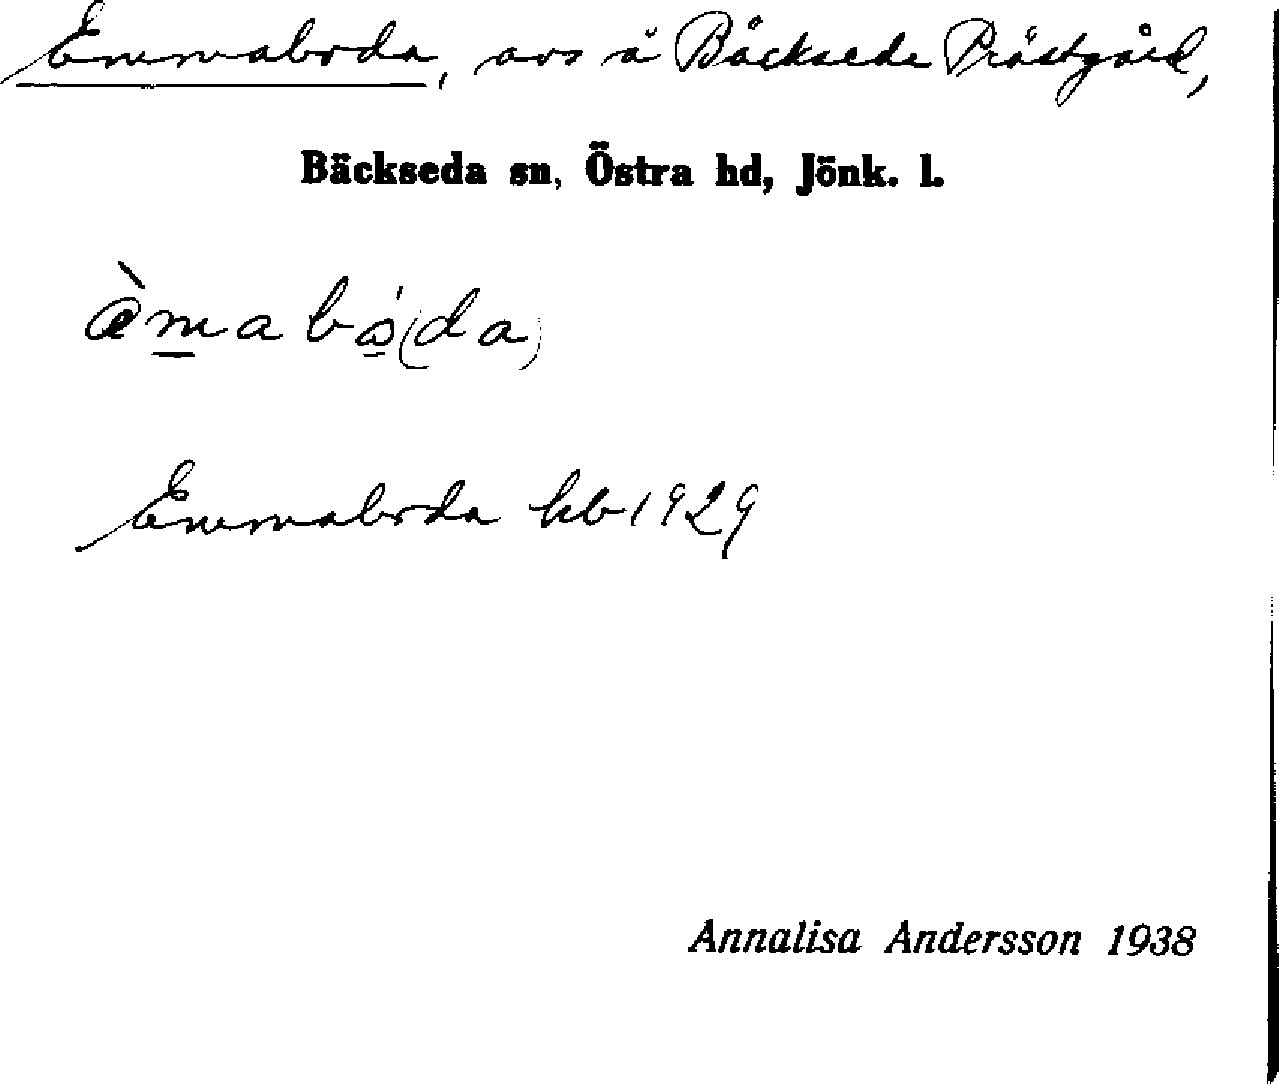 Emmaboda, avs å Bäckseda Prästgård,
Bäckseda sn, Östra hd, Jönk. l.
Emmaboda hb 1929
Annalisa Andersson 1938